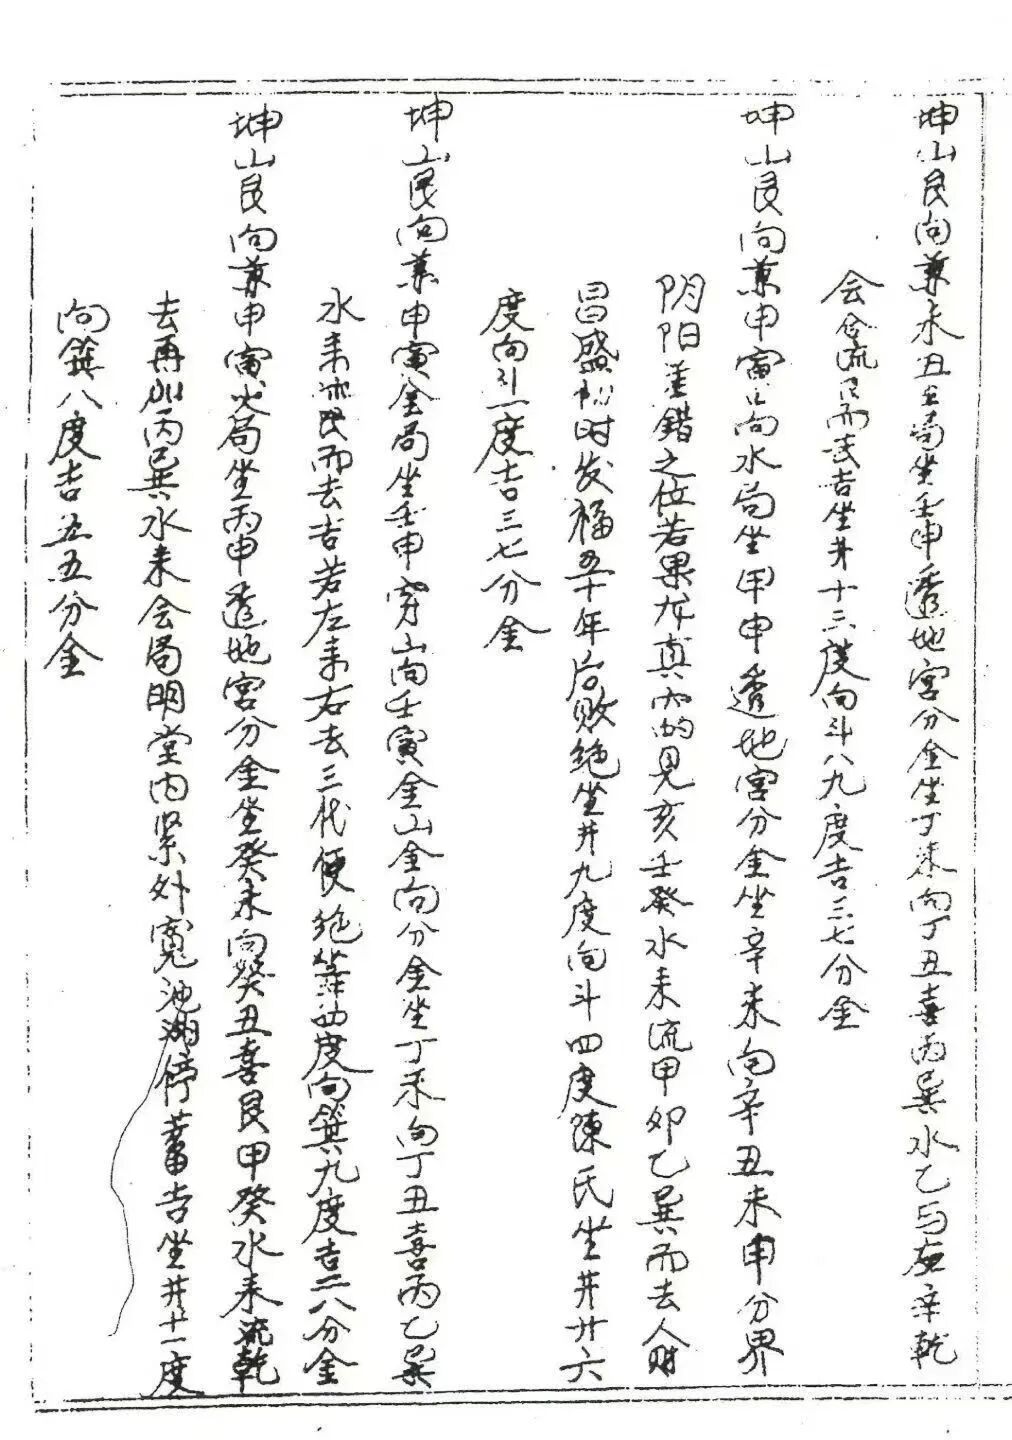 坤山艮向兼未丑土局坐壬申透地宫分金坐丁未向丁丑喜丙巽水乙与庚辛乾
会合流艮而去吉坐井十三度向斗八九度吉三七分金
坤山艮向兼申寅向水局坐甲申透地宫分金坐辛未向辛丑未申分界
阴阳差错之位若果龙真穴的见亥壬癸水来流甲卯乙巽而去人财
昌盛初时发福五十年后败绝坐井九度向斗四度陈氏坐井廿六
度向斗一度吉三七分金
坤山艮向兼申寅金局坐壬申穿山向壬寅金山金向分金坐丁未向丁丑喜丙乙巽
水来流艮而去吉若左来右去三代便绝坐井四度向箕九度吉二八分金
坤山艮向兼申寅火局坐丙申透地宫分金坐癸未向癸丑喜艮甲癸水来流乾
去再加丙巽水来会局明堂内紧外宽池湖停蓄吉坐井十一度
向箕八度吉五五分金